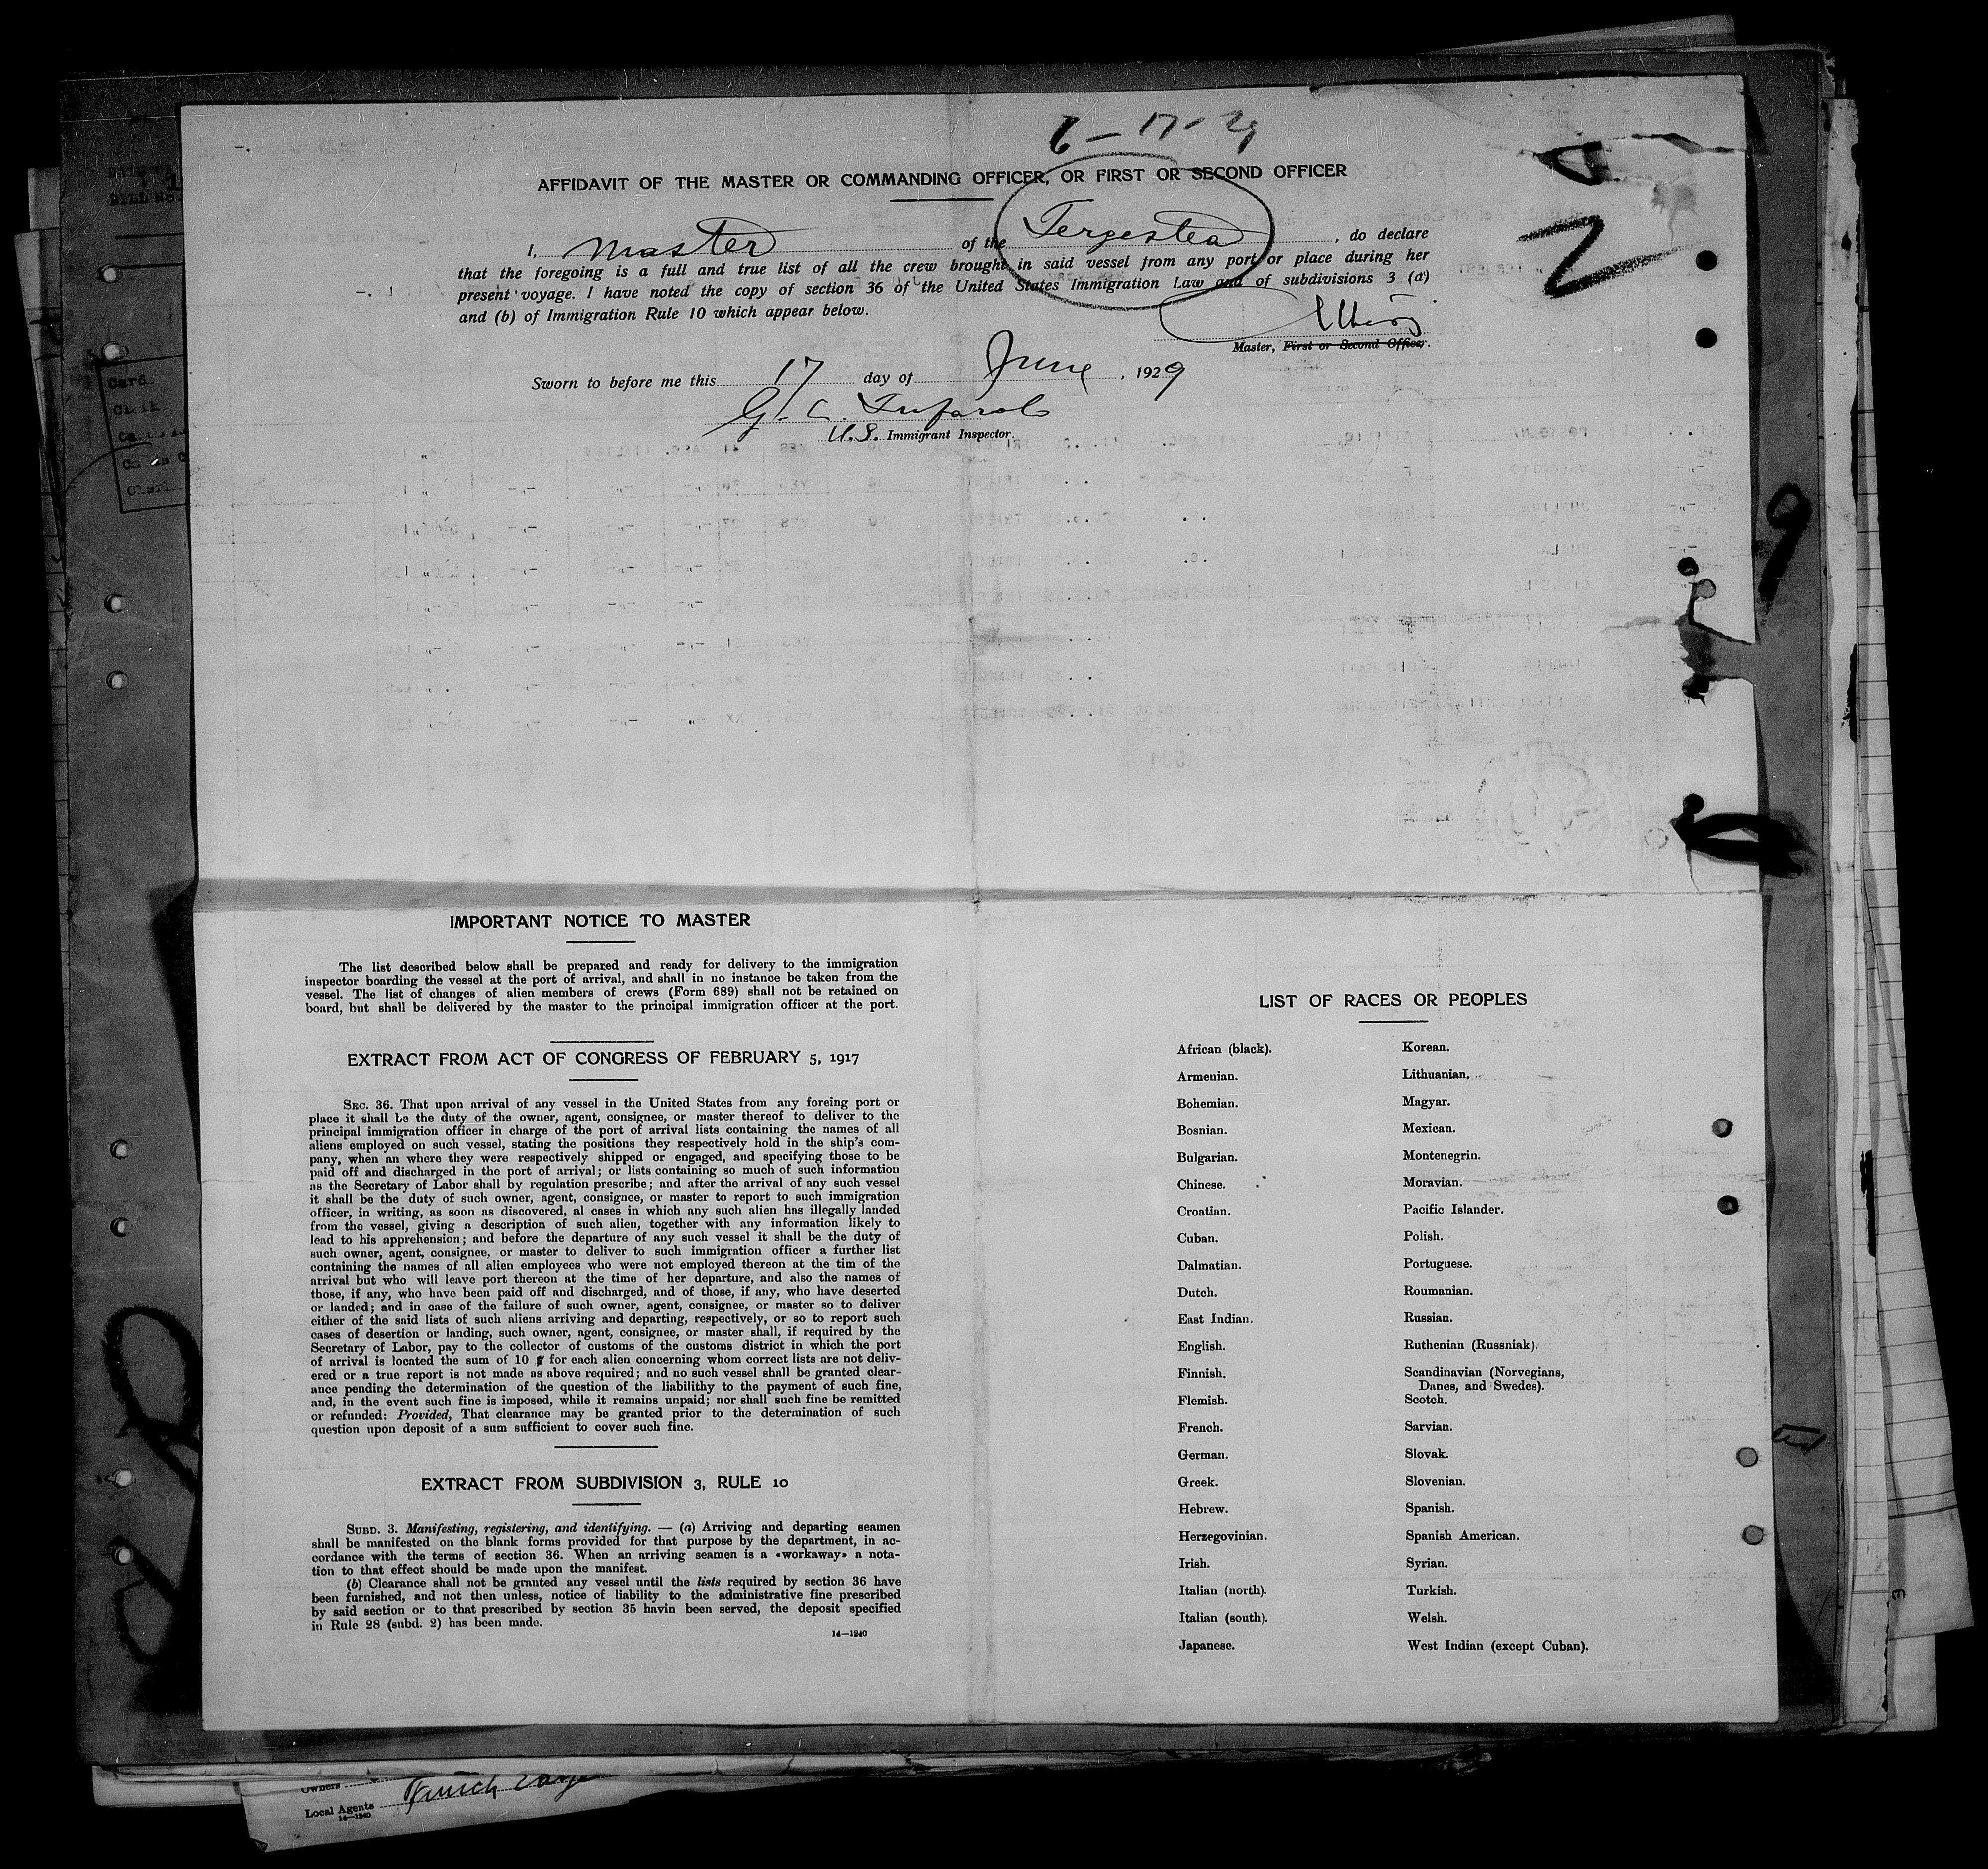 6-17-29
AFFIDAVIT OF THE MASTER OR COMMANDING OFFICER, OR FIRST OR SECOND OFFICER
I, Master of the Tergestea, do declare
that the foregoing is a full and true list of all the crew brought in said vessel from any port or place during her
present voyage. I have noted the copy of section 36 of the United States Immigration Law and of subdivisions 3 (a)
and (b) of Immigration Rule 10 which appear below.
Master, First or Second Officer.
Sworn to before me this 17 day of June, 1929
G. C.
U.S. Immigrant Inspector.
2
9
IMPORTANT NOTICE TO MASTER
The list described below shall be prepared and ready for delivery to the immigration
inspector boarding the vessel at the port of arrival, and shall in no instance be taken from the
vessel. The list of changes of alien members of crews (Form 689) shall not be retained on
board, but shall be delivered by the master to the principal immigration officer at the port.
EXTRACT FROM ACT OF CONGRESS OF FEBRUARY 5, 1917
SEC. 36. That upon arrival of any vessel in the United States from any foreing port or
place it shall be the duty of the owner, agent, consignee, or master thereof to deliver to the
principal immigration officer in charge of the port of arrival lists containing the names of all
aliens employed on such vessel, stating the positions they respectively hold in the ship's com-
pany, when an where they were respectively shipped or engaged, and specifying those to be
paid off and discharged in the port of arrival; or lists containing so much of such information
as the Secretary of Labor shall by regulation prescribe; and after the arrival of any such vessel
it shall be the duty of such owner, agent, consignee, or master to report to such immigration
officer, in writing, as soon as discovered, al cases in which any such alien has illegally landed
from the vessel, giving a description of such alien, together with any information likely to
lead to his apprehension; and before the departure of any such vessel it shall be the duty of
such owner, agent, consignee, or master to deliver to such immigration officer a further list
containing the names of all alien employees who were not employed thereon at the tim of the
arrival but who will leave port thereon at the time of her departure, and also the names of
those, if any, who have been paid off and discharged, and of those, if any, who have deserted
or landed; and in case of the failure of such owner, agent, consignee, or master so to deliver
either of the said lists of such aliens arriving and departing, respectively, or so to report such
cases of desertion or landing, such owner, agent, consignee, or master shall, if required by the
Secretary of Labor, pay to the collector of customs of the customs district in which the port
of arrival is located the sum of 10 $ for each alien concerning whom correct lists are not deliv-
ered or a true report is not made as above required; and no such vessel shall be granted clear-
ance pending the determination of the question of the liabilithy to the payment of such fine,
and, in the event such fine is imposed, while it remains unpaid; nor shall such fine be remitted
or refunded: Provided, That clearance may be granted prior to the determination of such
question upon deposit of a sum sufficient to cover such fine.
EXTRACT FROM SUBDIVISION 3, RULE 10
SUBD. 3. Manifesting, registering, and identifying. — (a) Arriving and departing seamen
shall be manifested on the blank forms provided for that purpose by the department, in ac-
cordance with the terms of section 36. When an arriving seamen is a «workaway» a nota-
tion to that effect should be made upon the manifest.
(b) Clearance shall not be granted any vessel until the lists required by section 36 have
been furnished, and not then unless, notice of liability to the administrative fine prescribed
by said section or to that prescribed by section 35 havin been served, the deposit specified
in Rule 28 (subd. 2) has been made.
14—1240
LIST OF RACES OR PEOPLES
African (black). Korean.
Armenian. Lithuanian.
Bohemian. Magyar.
Bosnian. Mexican.
Bulgarian. Montenegrin.
Chinese. Moravian.
Croatian. Pacific Islander.
Cuban. Polish.
Dalmatian. Portuguese.
Dutch. Roumanian.
East Indian. Russian.
English. Ruthenian (Russniak).
Finnish. Scandinavian (Norwegians,
Danes, and Swedes).
Flemish. Scotch.
French. Sarvian.
German. Slovak.
Greek. Slovenian.
Hebrew. Spanish.
Herzegovinian. Spanish American.
Irish. Syrian.
Italian (north). Turkish.
Italian (south). Welsh.
Japanese. West Indian (except Cuban).
Owners
Local Agents
14—1240